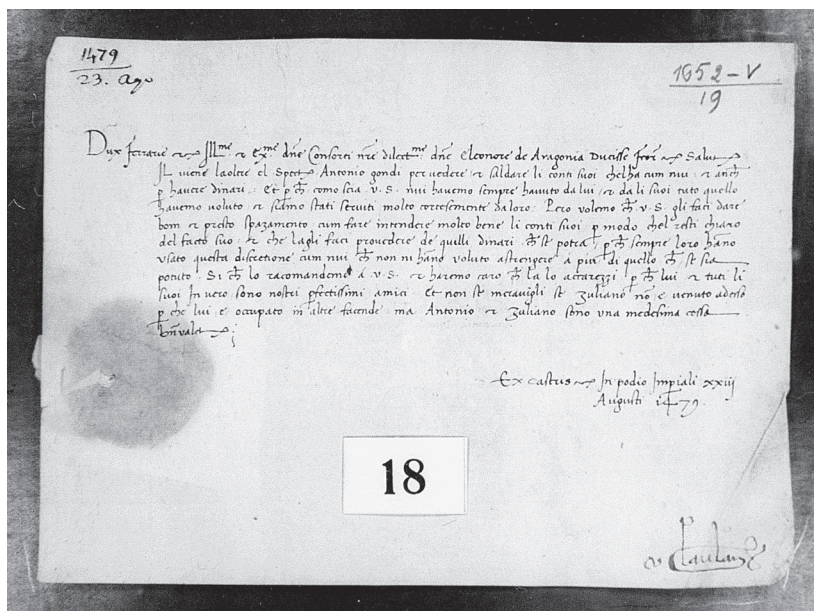 1479
23. Ago
1652-V
19
Dux Ferrarie &c Ill^me & Ex^me dñe Consorti nr̃e dilect^me dñe Eleonore de Aragonia Ducisse Ferr &c Salut
Il viene laoltre el Spect Antonio gondi per vedere & saldare li conti suoi chelha cum nui & anch
p havere dinari : Et p ch̃ como scia v. S. nui havemo sempre havuto da lui & da li suoi tuto quello
havemo voluto & siamo stati serviti molto cortesemente da loro: Pero volemo ch̃ v. S. gli faci dare
bom & presto spazamento cum fare intendere molto bene li conti suoi p modo chel resti chiaro
del facto suo & che la gli faci provedere de quilli dinari ch̃ se potra, p ch̃ sempre loro hano
usato questa discretione cum nui ch̃ non ni hano voluto astrengere a piu di quello ch̃ se sia
potuto. Si ch̃ lo racomandemo a v. S. & haremo caro ch̃ la lo accarezi p ch̃ lui & tuti li
suoi in vero sono nostri pfectissimi amici Et non se meravigli se Zuliano nõ e venuto adesso
p che lui e occupato in altre facende ma Antonio & Zuliano sono una medesima cossa
Bñvalet
Ex castris &c In podio Impiali xxiij
Augusti 1479.
18